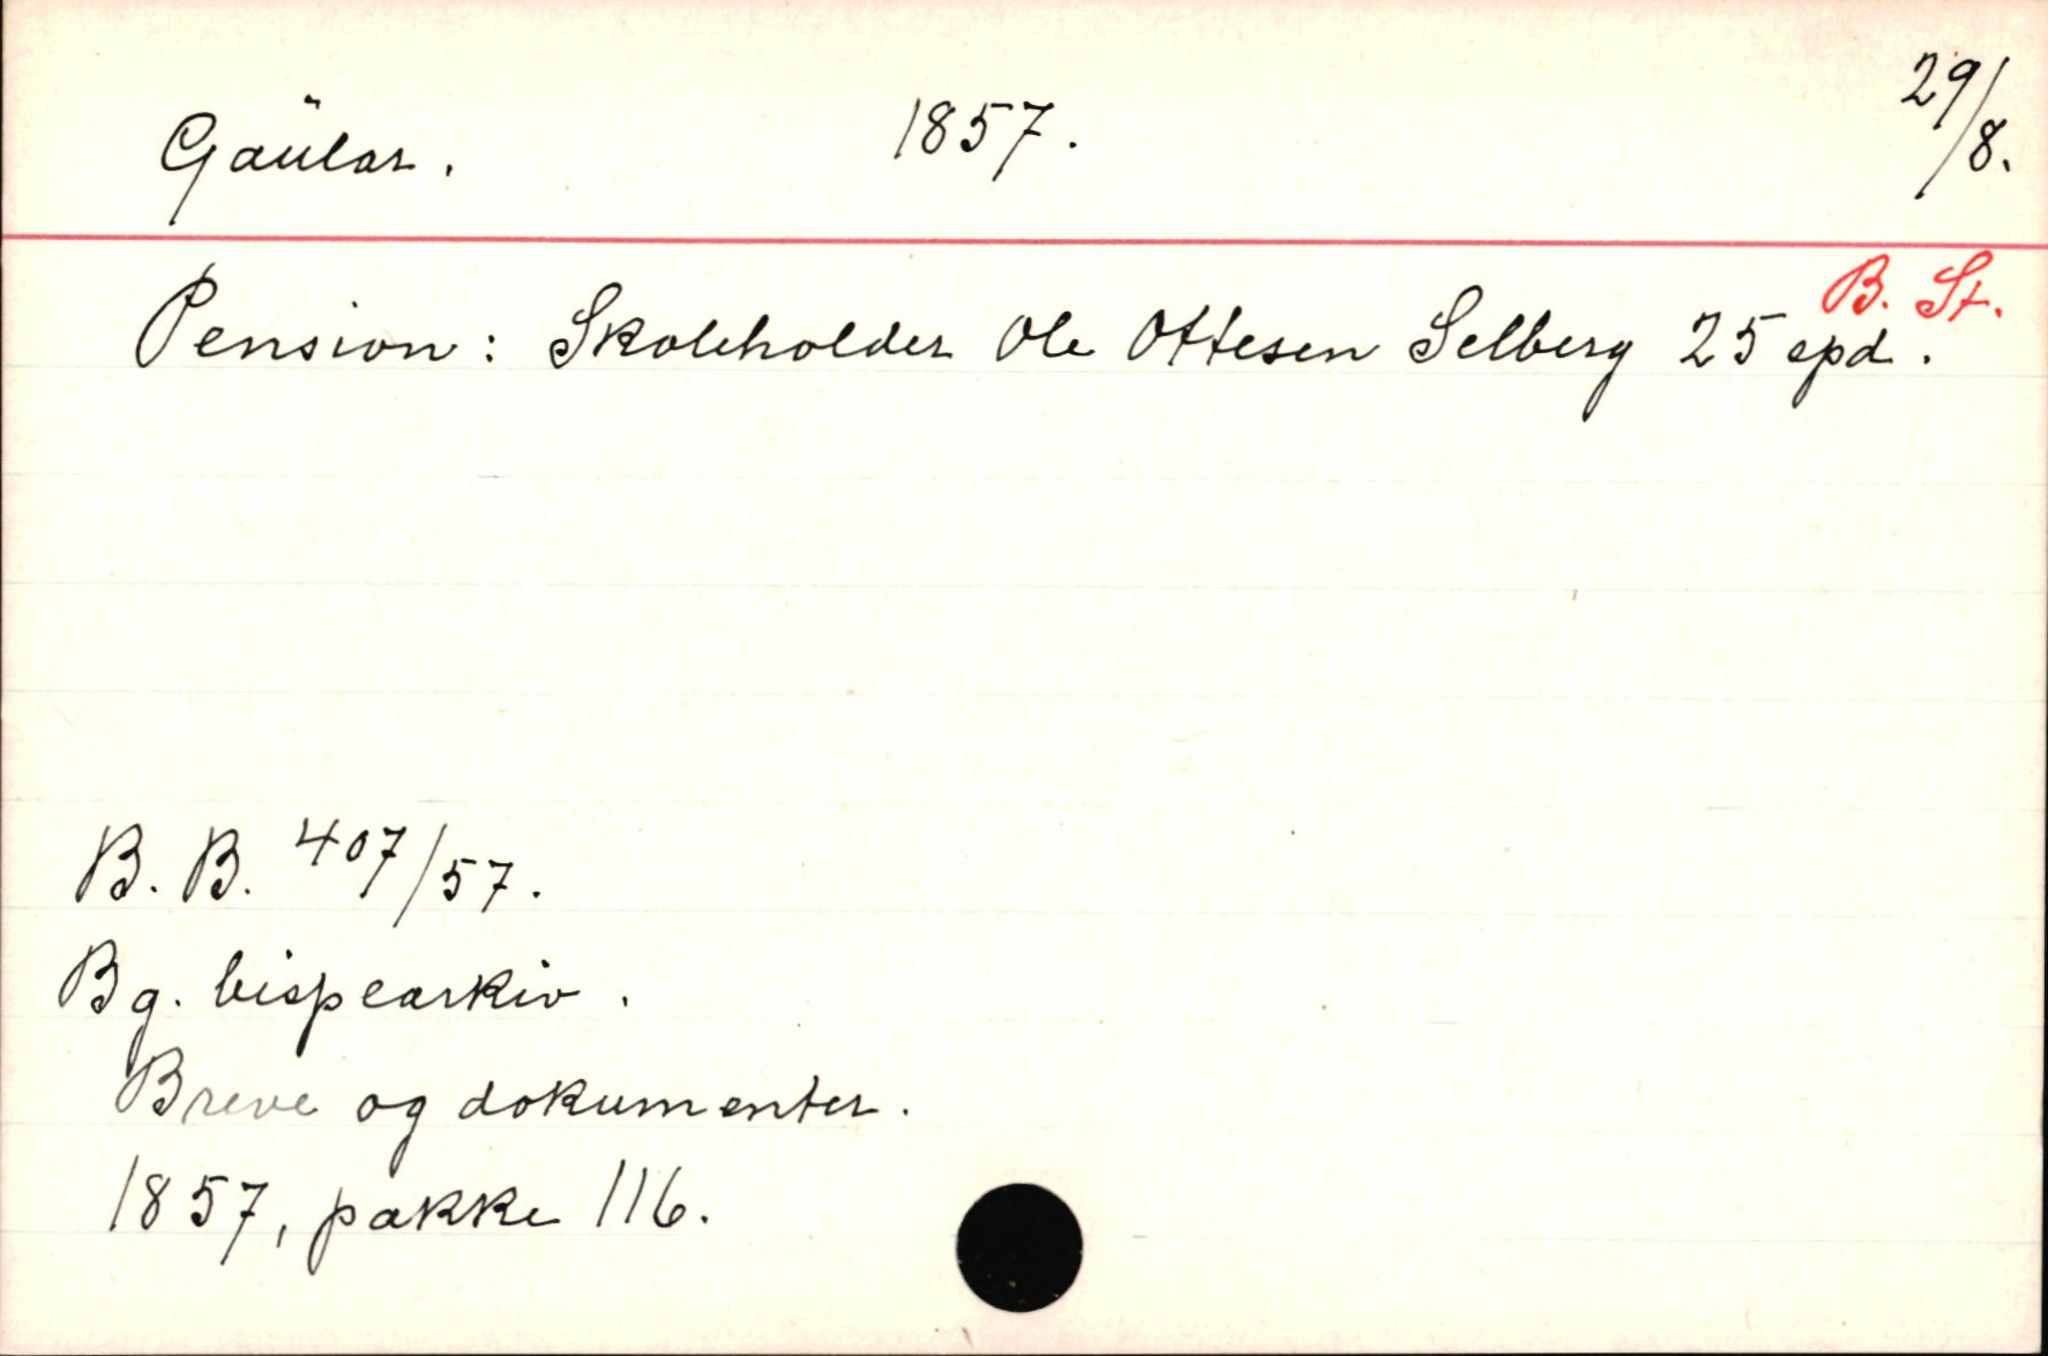 Gaülar. 1857. 29/8.
B. St.
Pension: Skoleholder Ole Ottesen Selberg 25 spd.
B. B. 407/57.
Bg. bispearkiv.
Breve og dokumenter.
1857, pakke 116.